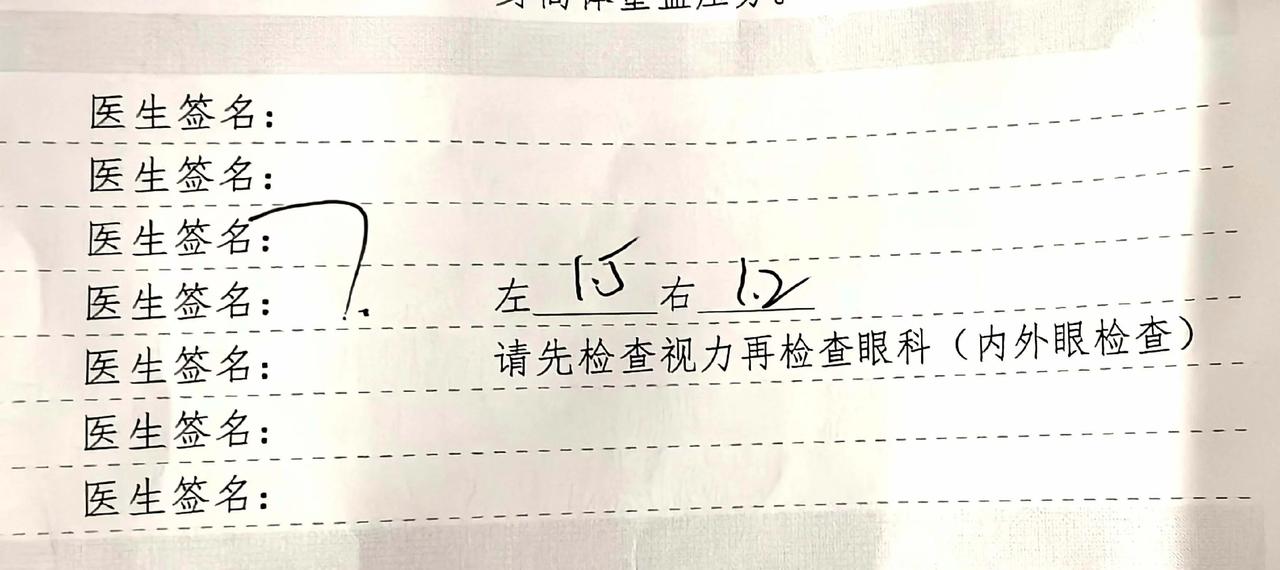 身高体重血压方。
医生签名：
医生签名：
医生签名：
医生签名： 左 1.5 右 1.2
医生签名： 请先检查视力再检查眼科（内外眼检查）
医生签名：
医生签名：